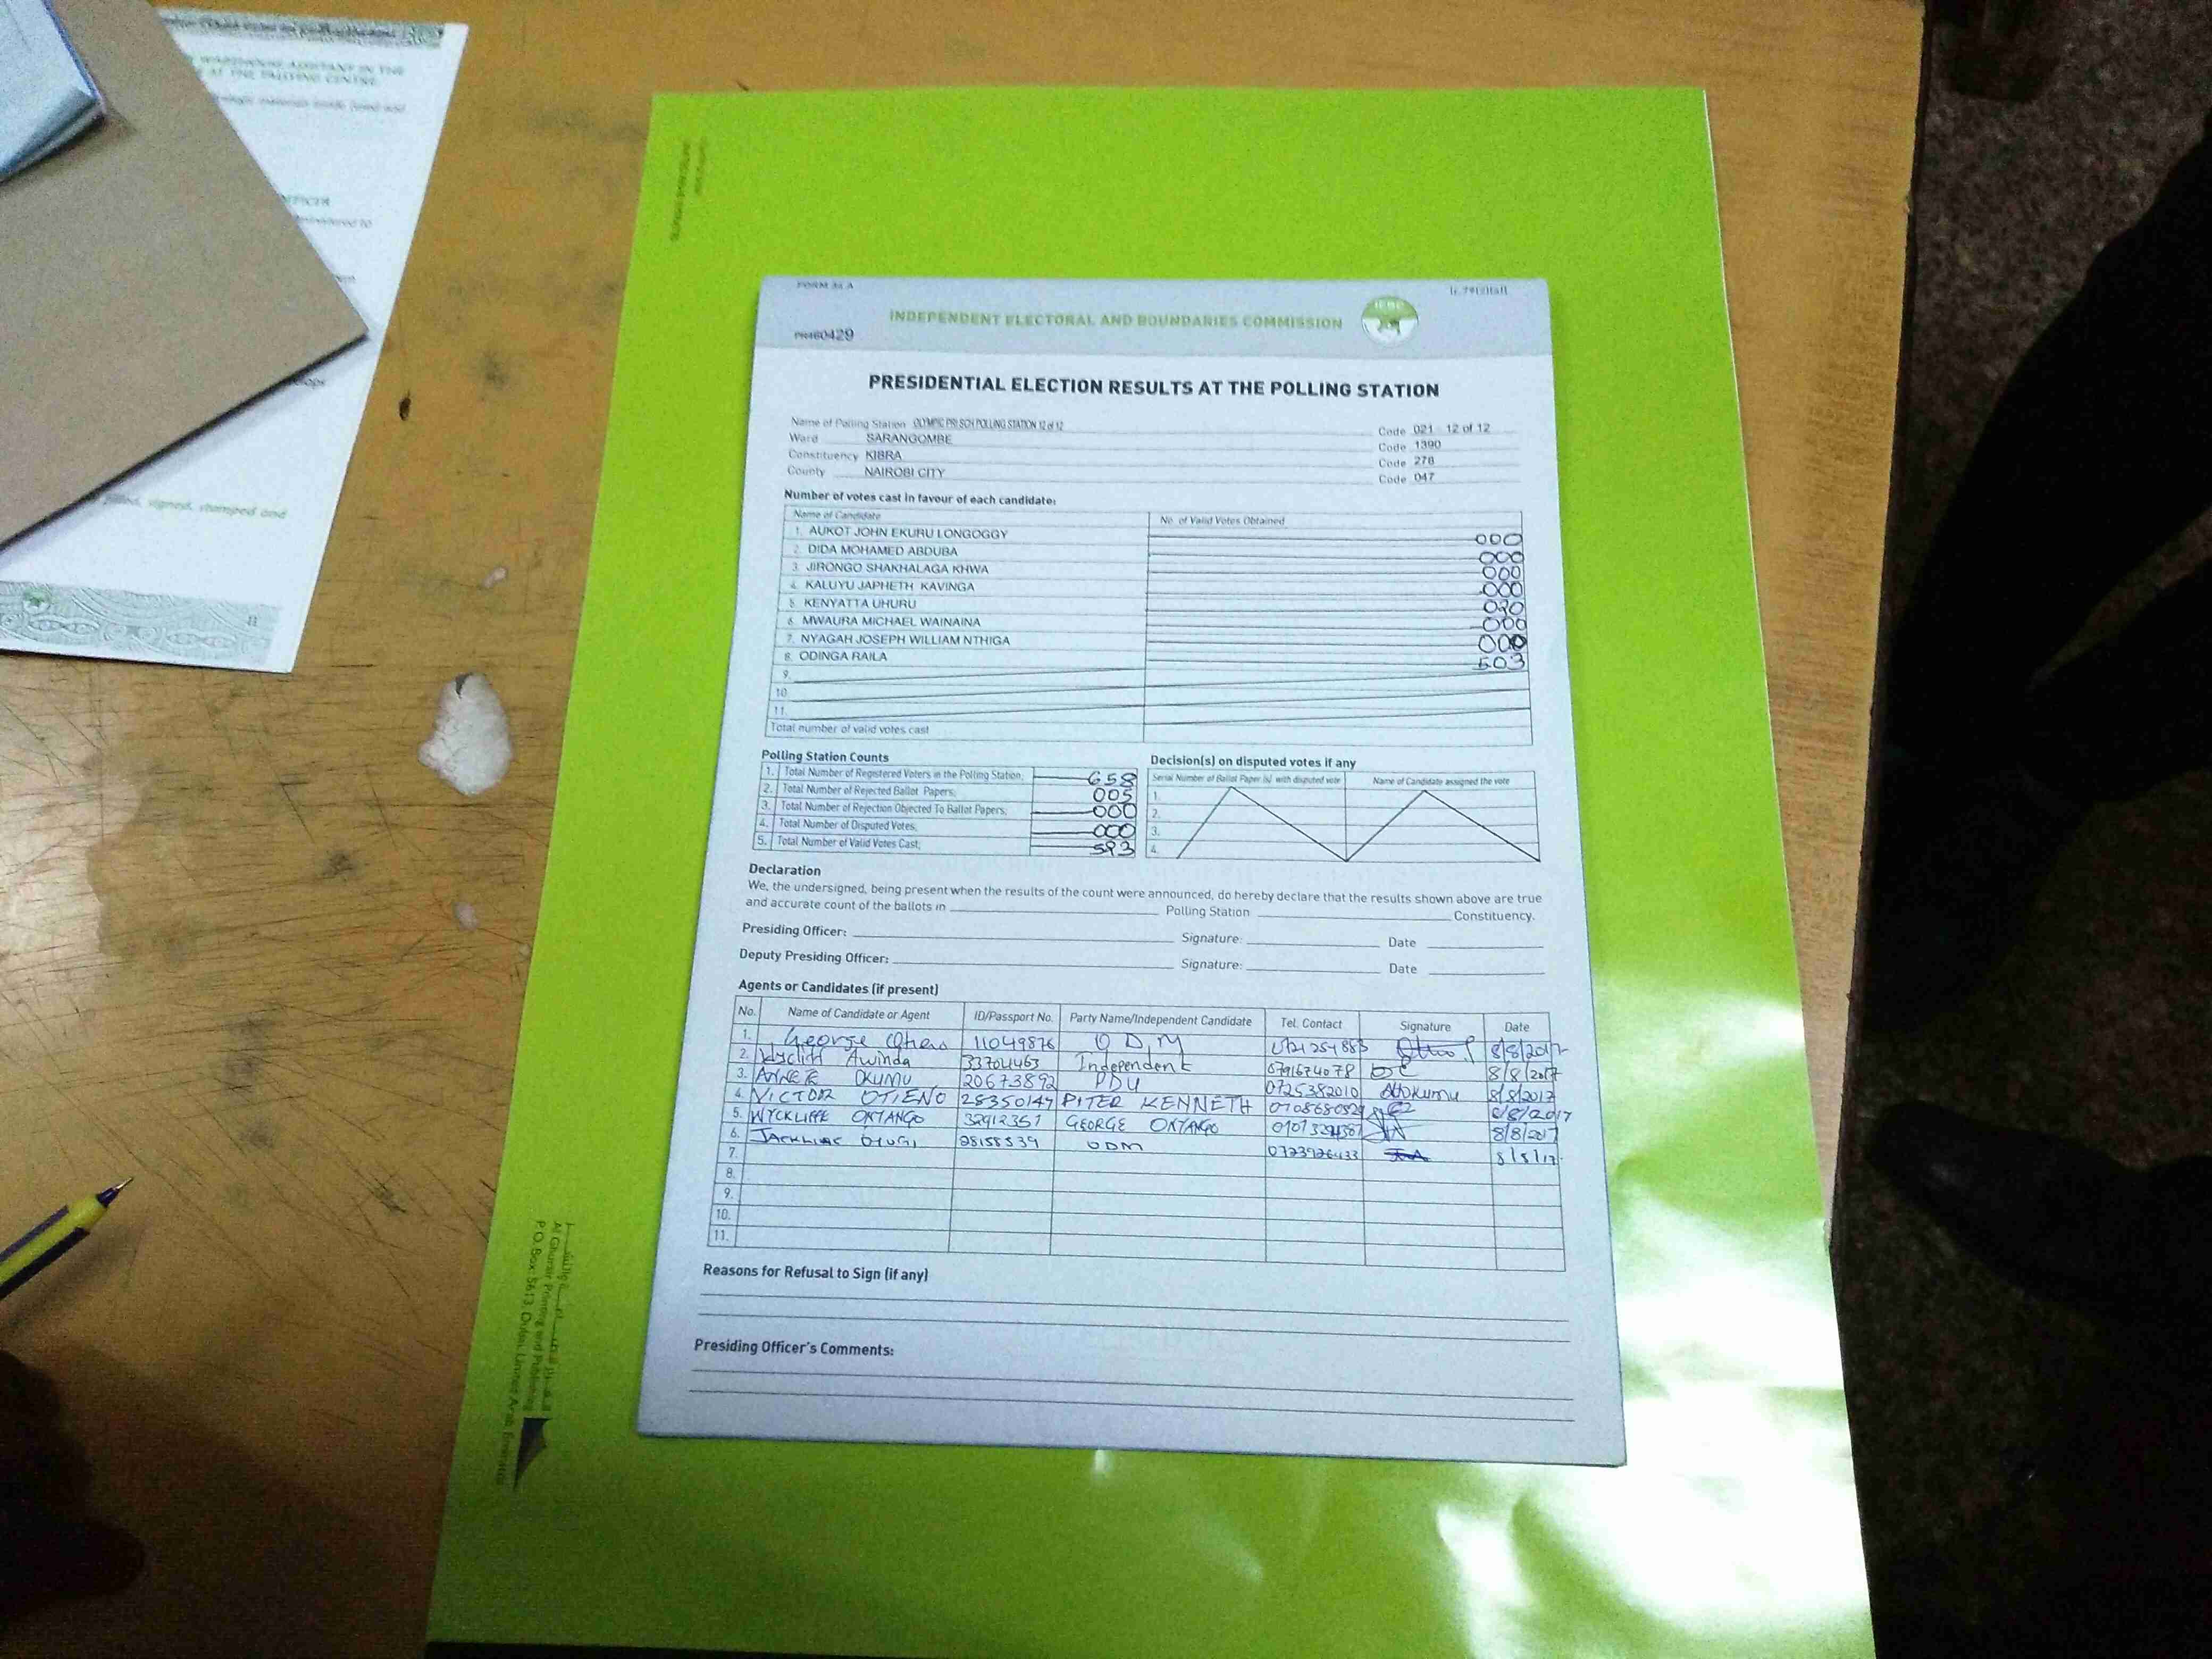 WAREHOUSE ASSISTANT IN THE
AT THE TALLYING CENTRE
signed, stamped and
FORM 34 A
INDEPENDENT ELECTORAL AND BOUNDARIES COMMISSION
PRESIDENTIAL ELECTION RESULTS AT THE POLLING STATION
Name of Polling Station OLYMPIC PRI SCH POLLING STATION 12 of 12 Code 021 12 of 12
Ward SARANGOMBE Code 1390
Constituency KIBRA Code 278
County NAIROBI CITY Code 047
Number of votes cast in favour of each candidate:
Name of Candidate No. of Valid Votes Obtained
1. AUKOT JOHN EKURU LONGOGGY 000
2. DIDA MOHAMED ABDUBA 000
3. JIRONGO SHAKHALAGA KHWA 000
4. KALUYU JAPHETH KAVINGA 000
5. KENYATTA UHURU
6. MWAURA MICHAEL WAINAINA 000
7. NYAGAH JOSEPH WILLIAM NTHIGA 000
8. ODINGA RAILA 503
9.
10.
11.
Total number of valid votes cast
Polling Station Counts
1. Total Number of Registered Voters in the Polling Station; 658
2. Total Number of Rejected Ballot Papers; 005
3. Total Number of Rejection Objected To Ballot Papers; 000
4. Total Number of Disputed Votes; 000
5. Total Number of Valid Votes Cast; 593
Decision(s) on disputed votes if any
Serial Number of Ballot Paper (s) with disputed vote Name of Candidate assigned the vote
1.
2.
3.
4.
Declaration
We, the undersigned, being present when the results of the count were announced, do hereby declare that the results shown above are true
and accurate count of the ballots in Polling Station Constituency.
Presiding Officer: Signature: Date
Deputy Presiding Officer: Signature: Date
Agents or Candidates (if present)
No. Name of Candidate or Agent ID/Passport No. Party Name/Independent Candidate Tel. Contact Signature Date
1. George 11049876 ODM 8/8/2017
2. Wycliff Awinda 33704463 Independent 8/8/2017
3. OKUMU 20673892 PDU 0725382010 8/8/2017
4. VICTOR OTIENO 28350147 PITER KENNETH 8/8/2017
5. WYCKLIFFE ONYANGO GEORGE ONYANGO 8/8/2017
6. 28158539 ODM 0723926433 8/8/17
7.
8.
9.
10.
11.
Reasons for Refusal to Sign (if any)
Presiding Officer's Comments:
Al Ghurair Printing and Publishing
P.O. Box: 5613, Dubai, United Arab Emirates